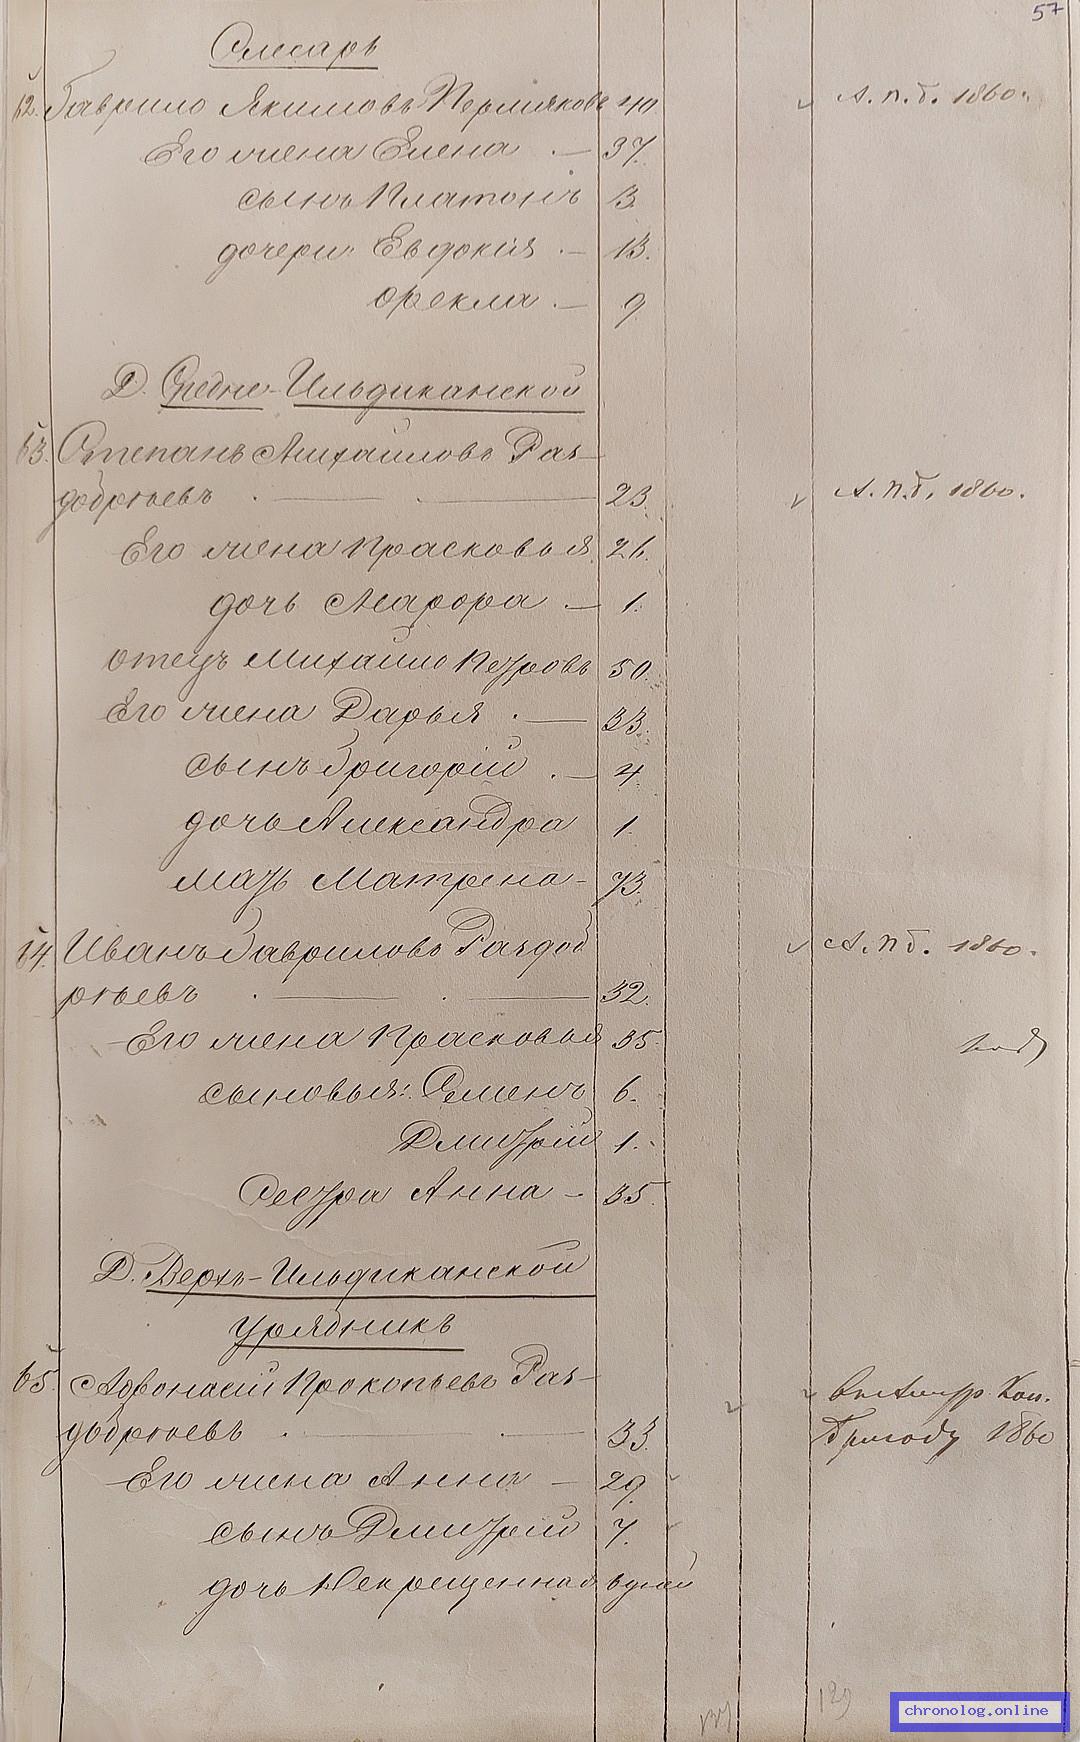 57
Слесарь
62. Гаврило Якимовъ Пермяковъ 40 А. п. б. 1860.
Его жена Елена 37.
сынъ Платонъ 3.
дочери: Евдокія 13.
Ѳекла 9
Д. Средне-Ильдиканской
63. Степанъ Михайловъ Раз-
добрѣевъ 23. А. п. б. 1860.
Его жена Прасковья 26.
дочь Мавра 1.
отецъ Михайло Петровъ 50.
Его жена Дарья 33.
сынъ Григорій 4.
дочь Александра 1.
мать Матрена 73.
64. Иванъ Гавриловъ Раздоб А. п. б. 1860.
рѣевъ 32.
Его жена Прасковья 35.
сыновья: Семенъ 6.
Дмитрій 1.
Сестра Анна 35.
Д. Верхъ-Ильдиканской
Урядникъ
65. Афонасій Прокопьевъ Раз- Кон.
добрѣевъ 33. Бригаду 1860
Его жена Анна 29.
сынъ Дмитрій 7.
дочь Некрещенная 6 дней
129
chronolog.online